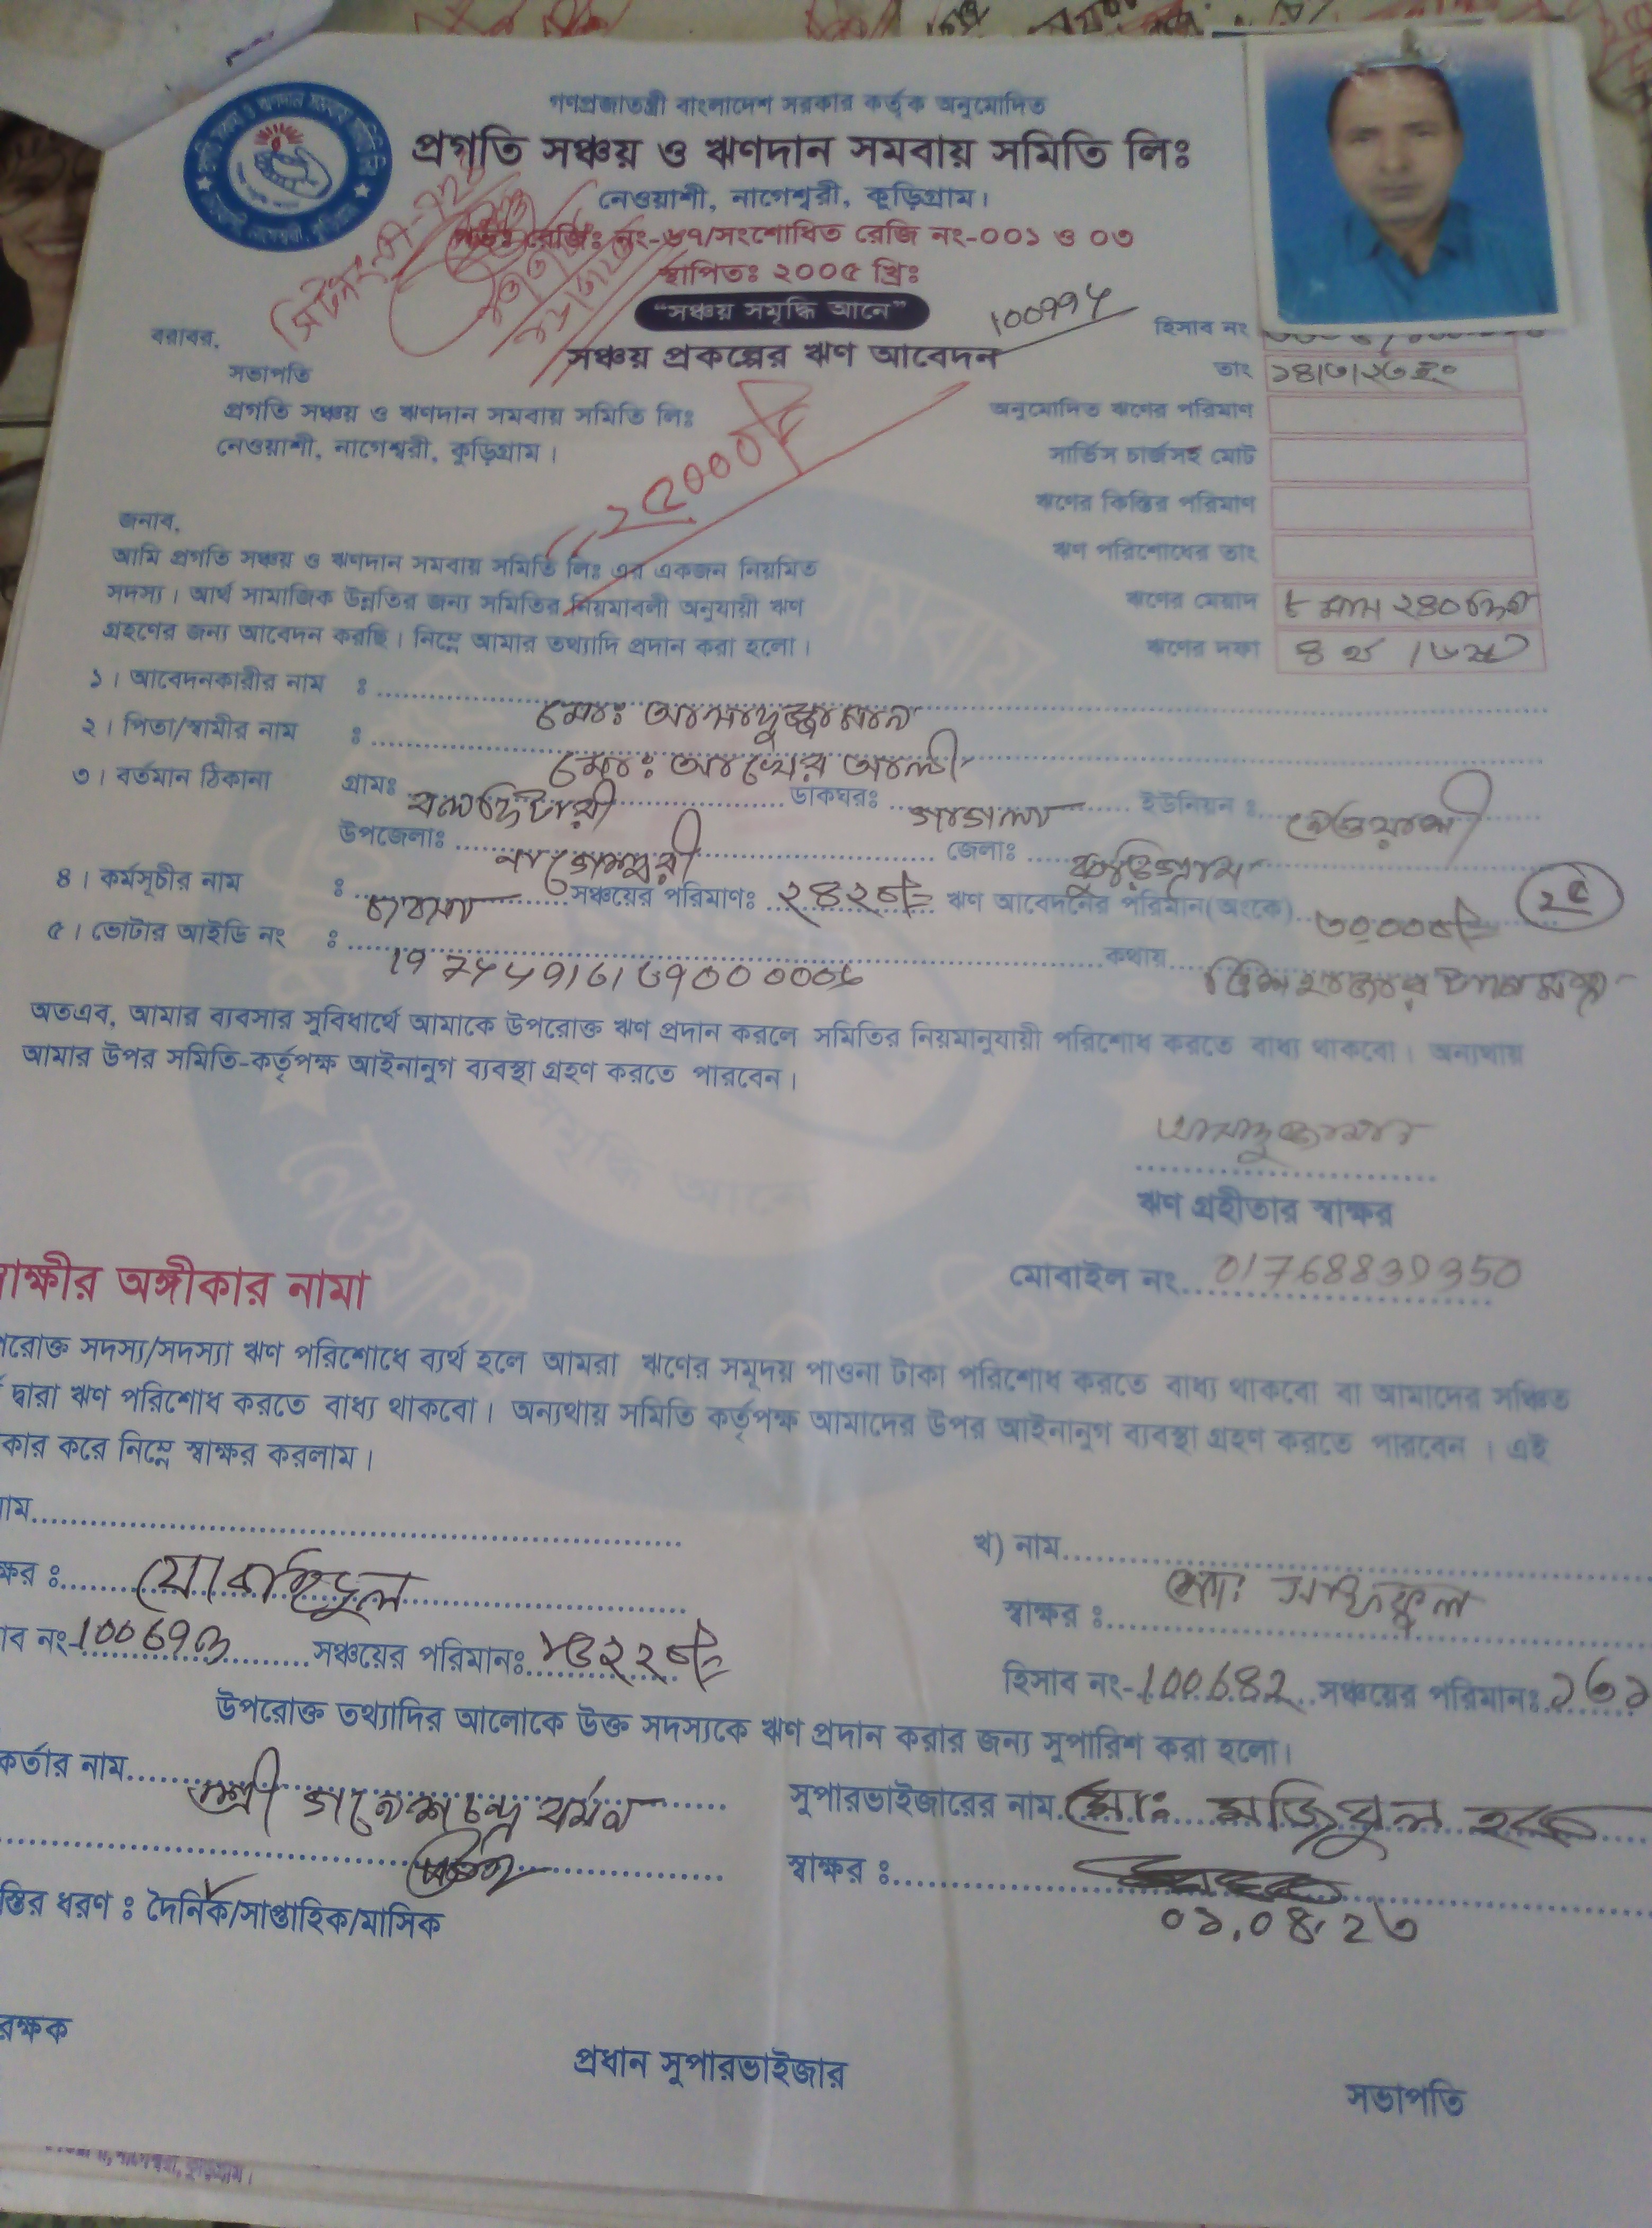 গণপ্রজাতন্ত্রী বাংলাদেশ সরকার কর্তৃক অনুমোদিত
প্রগতি সঞ্চয় ও ঋণদান সমবায় সমিতি লিঃ
নেওয়াশী, নাগেশ্বরী, কুড়িগ্রাম।
রেজিঃ নং-৬৭/সংশোধিত রেজি নং-০০১ ও ০৩
স্থাপিতঃ ২০০৫ খ্রিঃ
“সঞ্চয় সমৃদ্ধি আনে”
সঞ্চয় প্রকল্পের ঋণ আবেদন
হিসাব নং
তাং ১৪/৩/২৩ ইং
অনুমোদিত ঋণের পরিমাণ
সার্ভিস চার্জসহ মোট
ঋণের কিস্তির পরিমাণ
ঋণ পরিশোধের তাং
ঋণের মেয়াদ ৮ মাস ২৪০ দিন
ঋণের দফা ৪ র্থ
বরাবর,
সভাপতি
প্রগতি সঞ্চয় ও ঋণদান সমবায় সমিতি লিঃ
নেওয়াশী, নাগেশ্বরী, কুড়িগ্রাম।
২৫০০০/=
জনাব,
আমি প্রগতি সঞ্চয় ও ঋণদান সমবায় সমিতি লিঃ এর একজন নিয়মিত
সদস্য। আর্থ সামাজিক উন্নতির জন্য সমিতির নিয়মাবলী অনুযায়ী ঋণ
গ্রহণের জন্য আবেদন করছি। নিম্নে আমার তথ্যাদি প্রদান করা হলো।
১। আবেদনকারীর নাম : মোঃ আসাদুজ্জামান
২। পিতা/স্বামীর নাম : মোঃ আখের আলী
৩। বর্তমান ঠিকানা গ্রামঃ ডাকঘরঃ গাগলা ইউনিয়ন : নেওয়াশী
উপজেলাঃ নাগেশ্বরী জেলাঃ কুড়িগ্রাম
৪। কর্মসূচীর নাম : ব্যবসা সঞ্চয়ের পরিমাণঃ ২৪২০/= ঋণ আবেদনের পরিমান(অংকে) ৩০০০০/= ২৫
৫। ভোটার আইডি নং : কথায় ত্রিশ হাজার টাকা মাত্র
অতএব, আমার ব্যবসার সুবিধার্থে আমাকে উপরোক্ত ঋণ প্রদান করলে সমিতির নিয়মানুযায়ী পরিশোধ করতে বাধ্য থাকবো। অন্যথায়
আমার উপর সমিতি-কর্তৃপক্ষ আইনানুগ ব্যবস্থা গ্রহণ করতে পারবেন।
আসাদুজ্জামান
ঋণ গ্রহীতার স্বাক্ষর
মোবাইল নং 01768839350
াক্ষীর অঙ্গীকার নামা
পরোক্ত সদস্য/সদস্যা ঋণ পরিশোধে ব্যর্থ হলে আমরা ঋণের সমূদয় পাওনা টাকা পরিশোধ করতে বাধ্য থাকবো বা আমাদের সঞ্চিত
দ্বারা ঋণ পরিশোধ করতে বাধ্য থাকবো। অন্যথায় সমিতি কর্তৃপক্ষ আমাদের উপর আইনানুগ ব্যবস্থা গ্রহণ করতে পারবেন। এই
কার করে নিম্নে স্বাক্ষর করলাম।
াম
ক্ষর :
াব নং- 100693 সঞ্চয়ের পরিমানঃ
খ) নাম
স্বাক্ষর :
হিসাব নং- 100682 সঞ্চয়ের পরিমানঃ
উপরোক্ত তথ্যাদির আলোকে উক্ত সদস্যকে ঋণ প্রদান করার জন্য সুপারিশ করা হলো।
কর্তার নাম শ্রী গনেশ চন্দ্র বর্মন
সুপারভাইজারের নাম মোঃ মজিবুল হক
স্বাক্ষর :
০১.০৪.২৩
স্তির ধরণ : দৈনিক/সাপ্তাহিক/মাসিক
রক্ষক
প্রধান সুপারভাইজার
সভাপতি